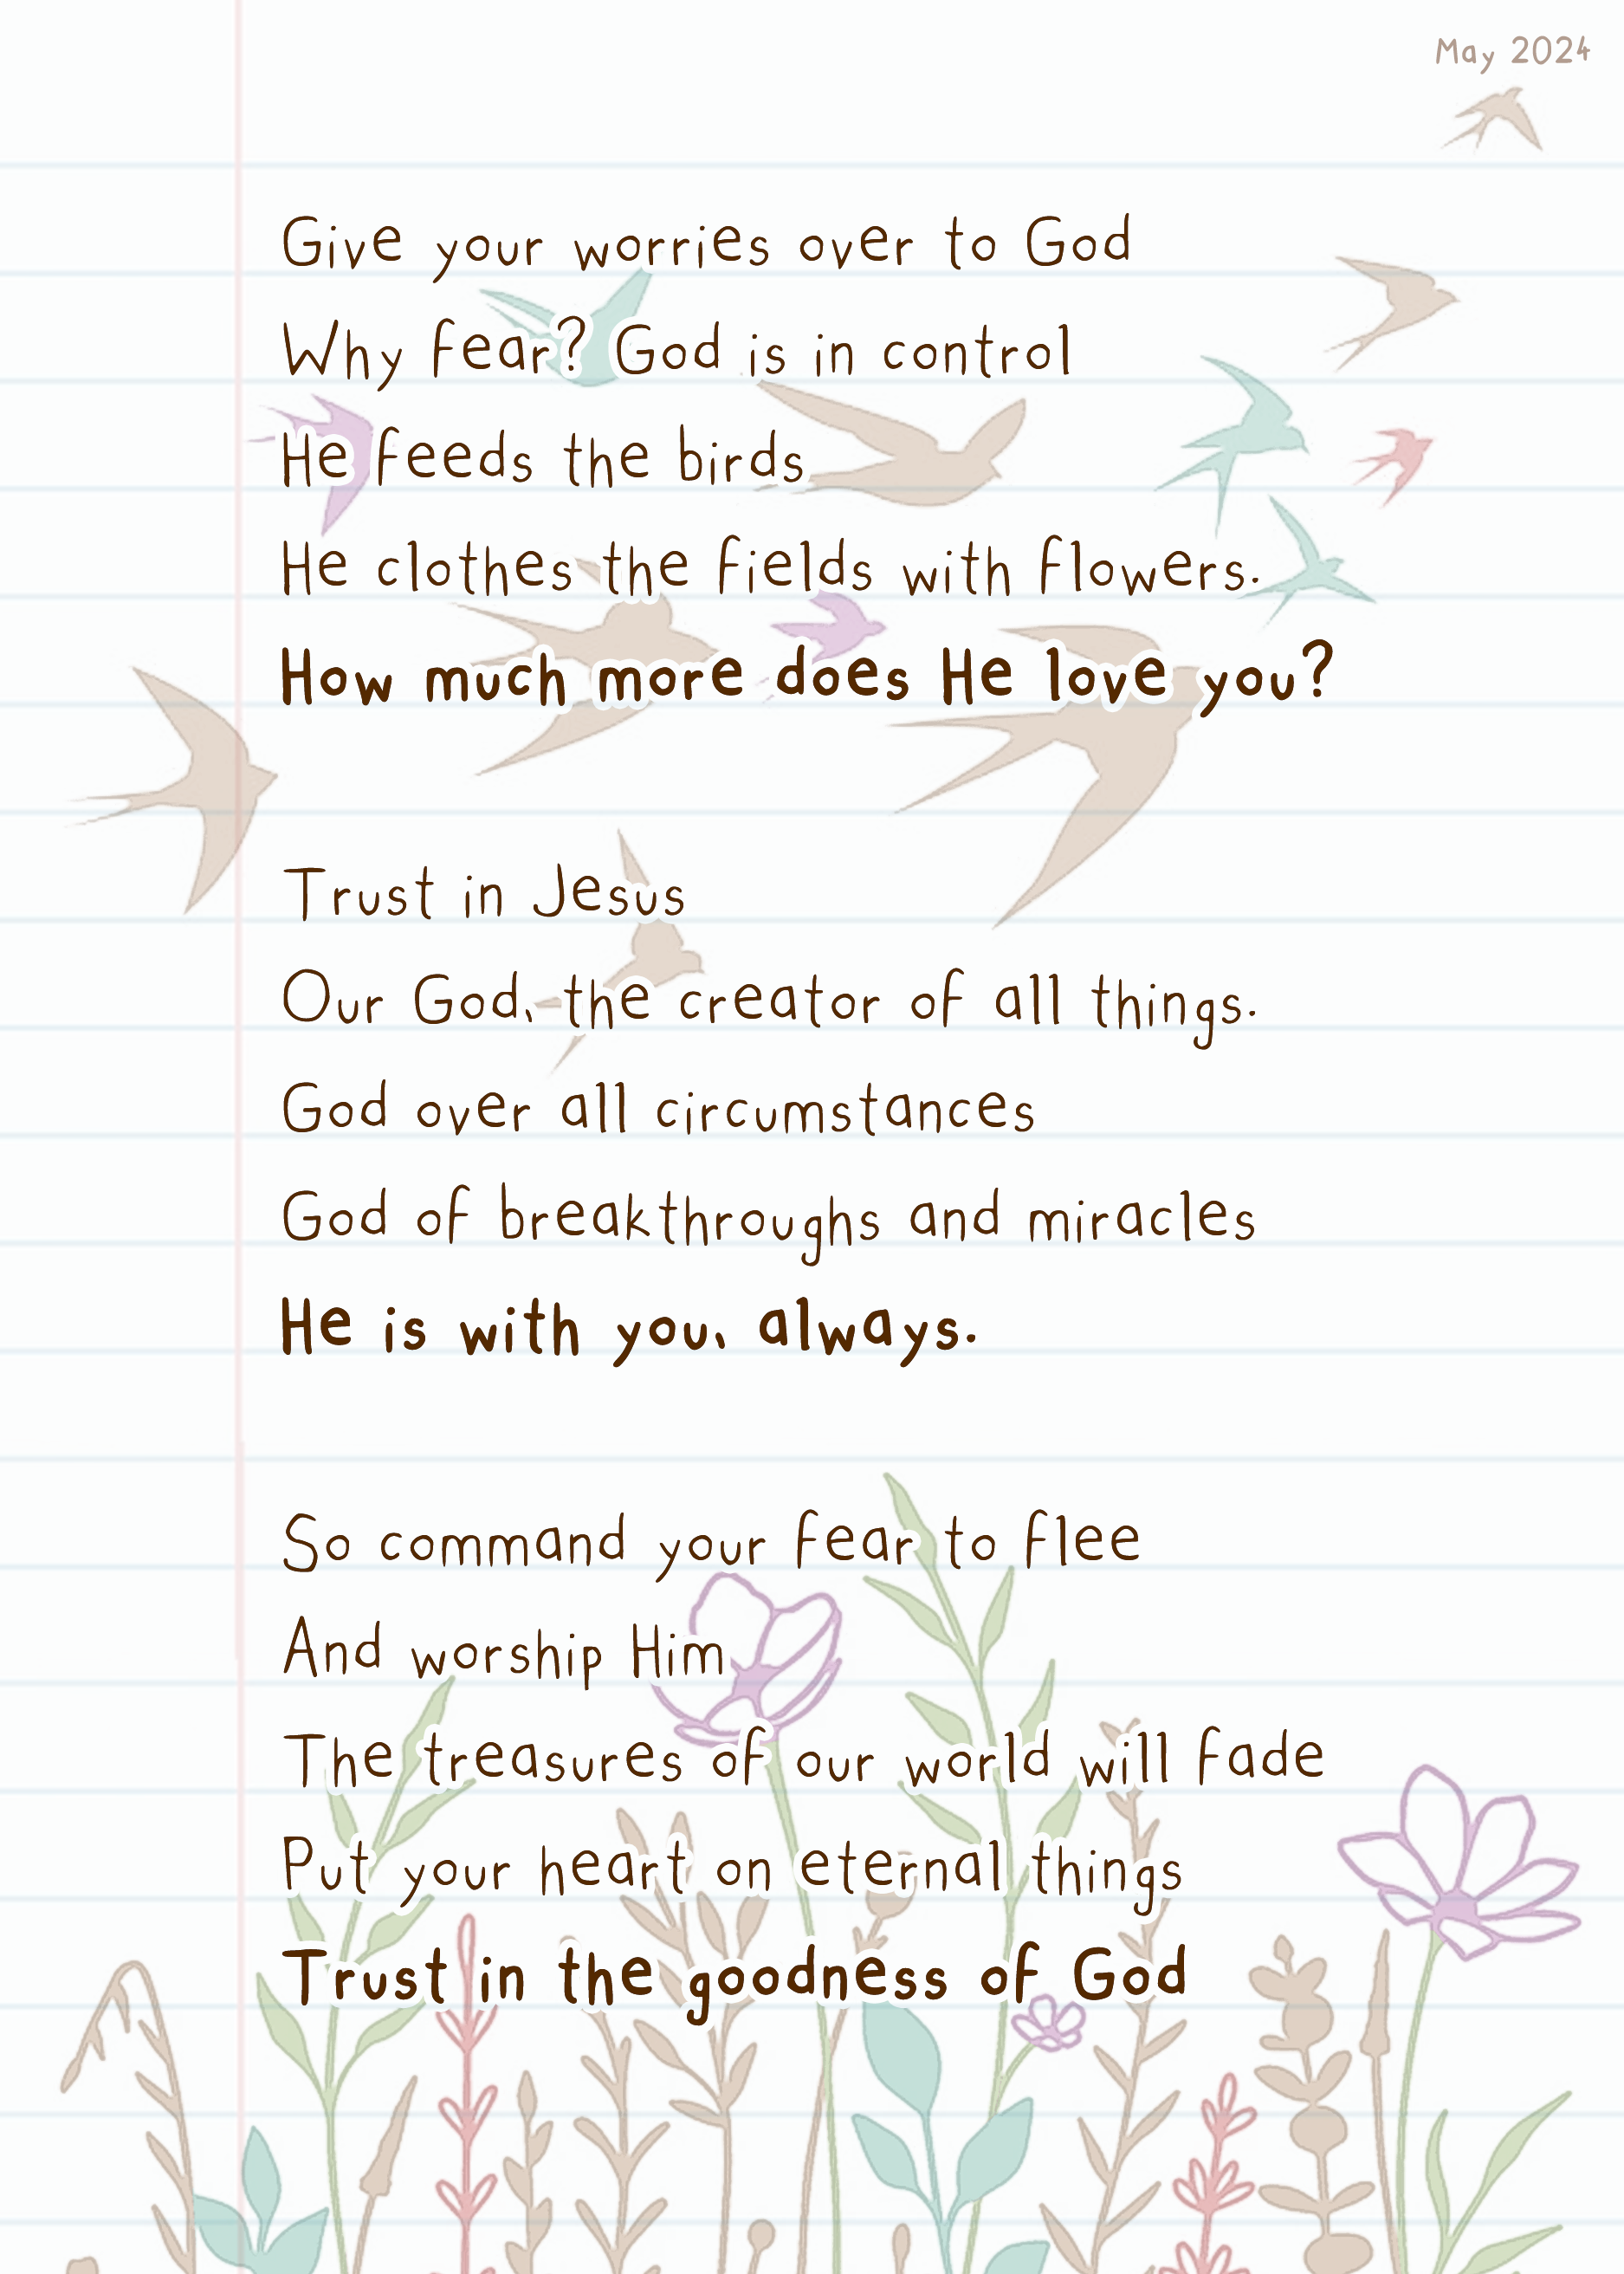 May 2024
Give your worries over to God
Why fear? God is in control
He feeds the birds
He clothes the fields with flowers.
How much more does He love you?
Trust in Jesus
Our God, the creator of all things.
God over all circumstances
God of breakthroughs and miracles
He is with you, always.
So command your fear to flee
And worship Him
The treasures of our world will fade
Put your heart on eternal things
Trust in the goodness of God